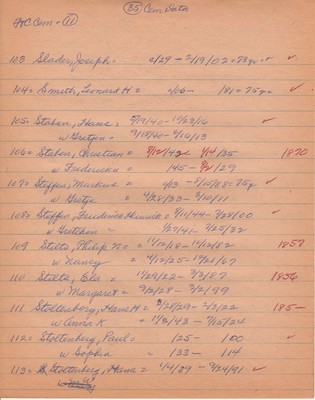 (35) Cem Data
HC Cem - (11)
103 Slader, Joseph = 0/29 - 2/19/02 = 73yr = ✓ ✓
104 = Smith, Leonard H = 0/06 - /81 = 75yr = ✓
105 = Staben, Hans = 7/19/40 - 10/23/16 ✓
w Gretje = 3/18/40 - 9/10/13
106 = Staben, Christian = 8/12/43 - 1/14/35 1870
w Fredericka = /45 - 8/2/29
107 = Steffen, Markus = 9/3 - 5/10/08 = 75y ✓
w Gretje = 4/28/33 - 3/10/11
108 = Steffen, Frederick Heinrich = 9/11/44 - 7/28/00 ✓
w Gretchen = 1/29/41 - 9/25/22
109 Stilts, Philip N = 11/12/18 - 10/12/82 1857
w Nancy = 4/12/25 - 10/21/67
110 Stiltz, Ela = 11/29/22 - 3/3/87 1856
w Margaret = 3/2/28 - 3/2/99
111 Stoltenberg, Hans H = 3/28/29 - 2/2/22 185-
w Anna K = 11/8/43 - 7/15/24
112 = Stoltenberg, Paul = /25 - /00 ✓
w Sophia = /33 - /14
113 = Stoltenberg, Hans = 1/4/29 - 9/24/91 ✓